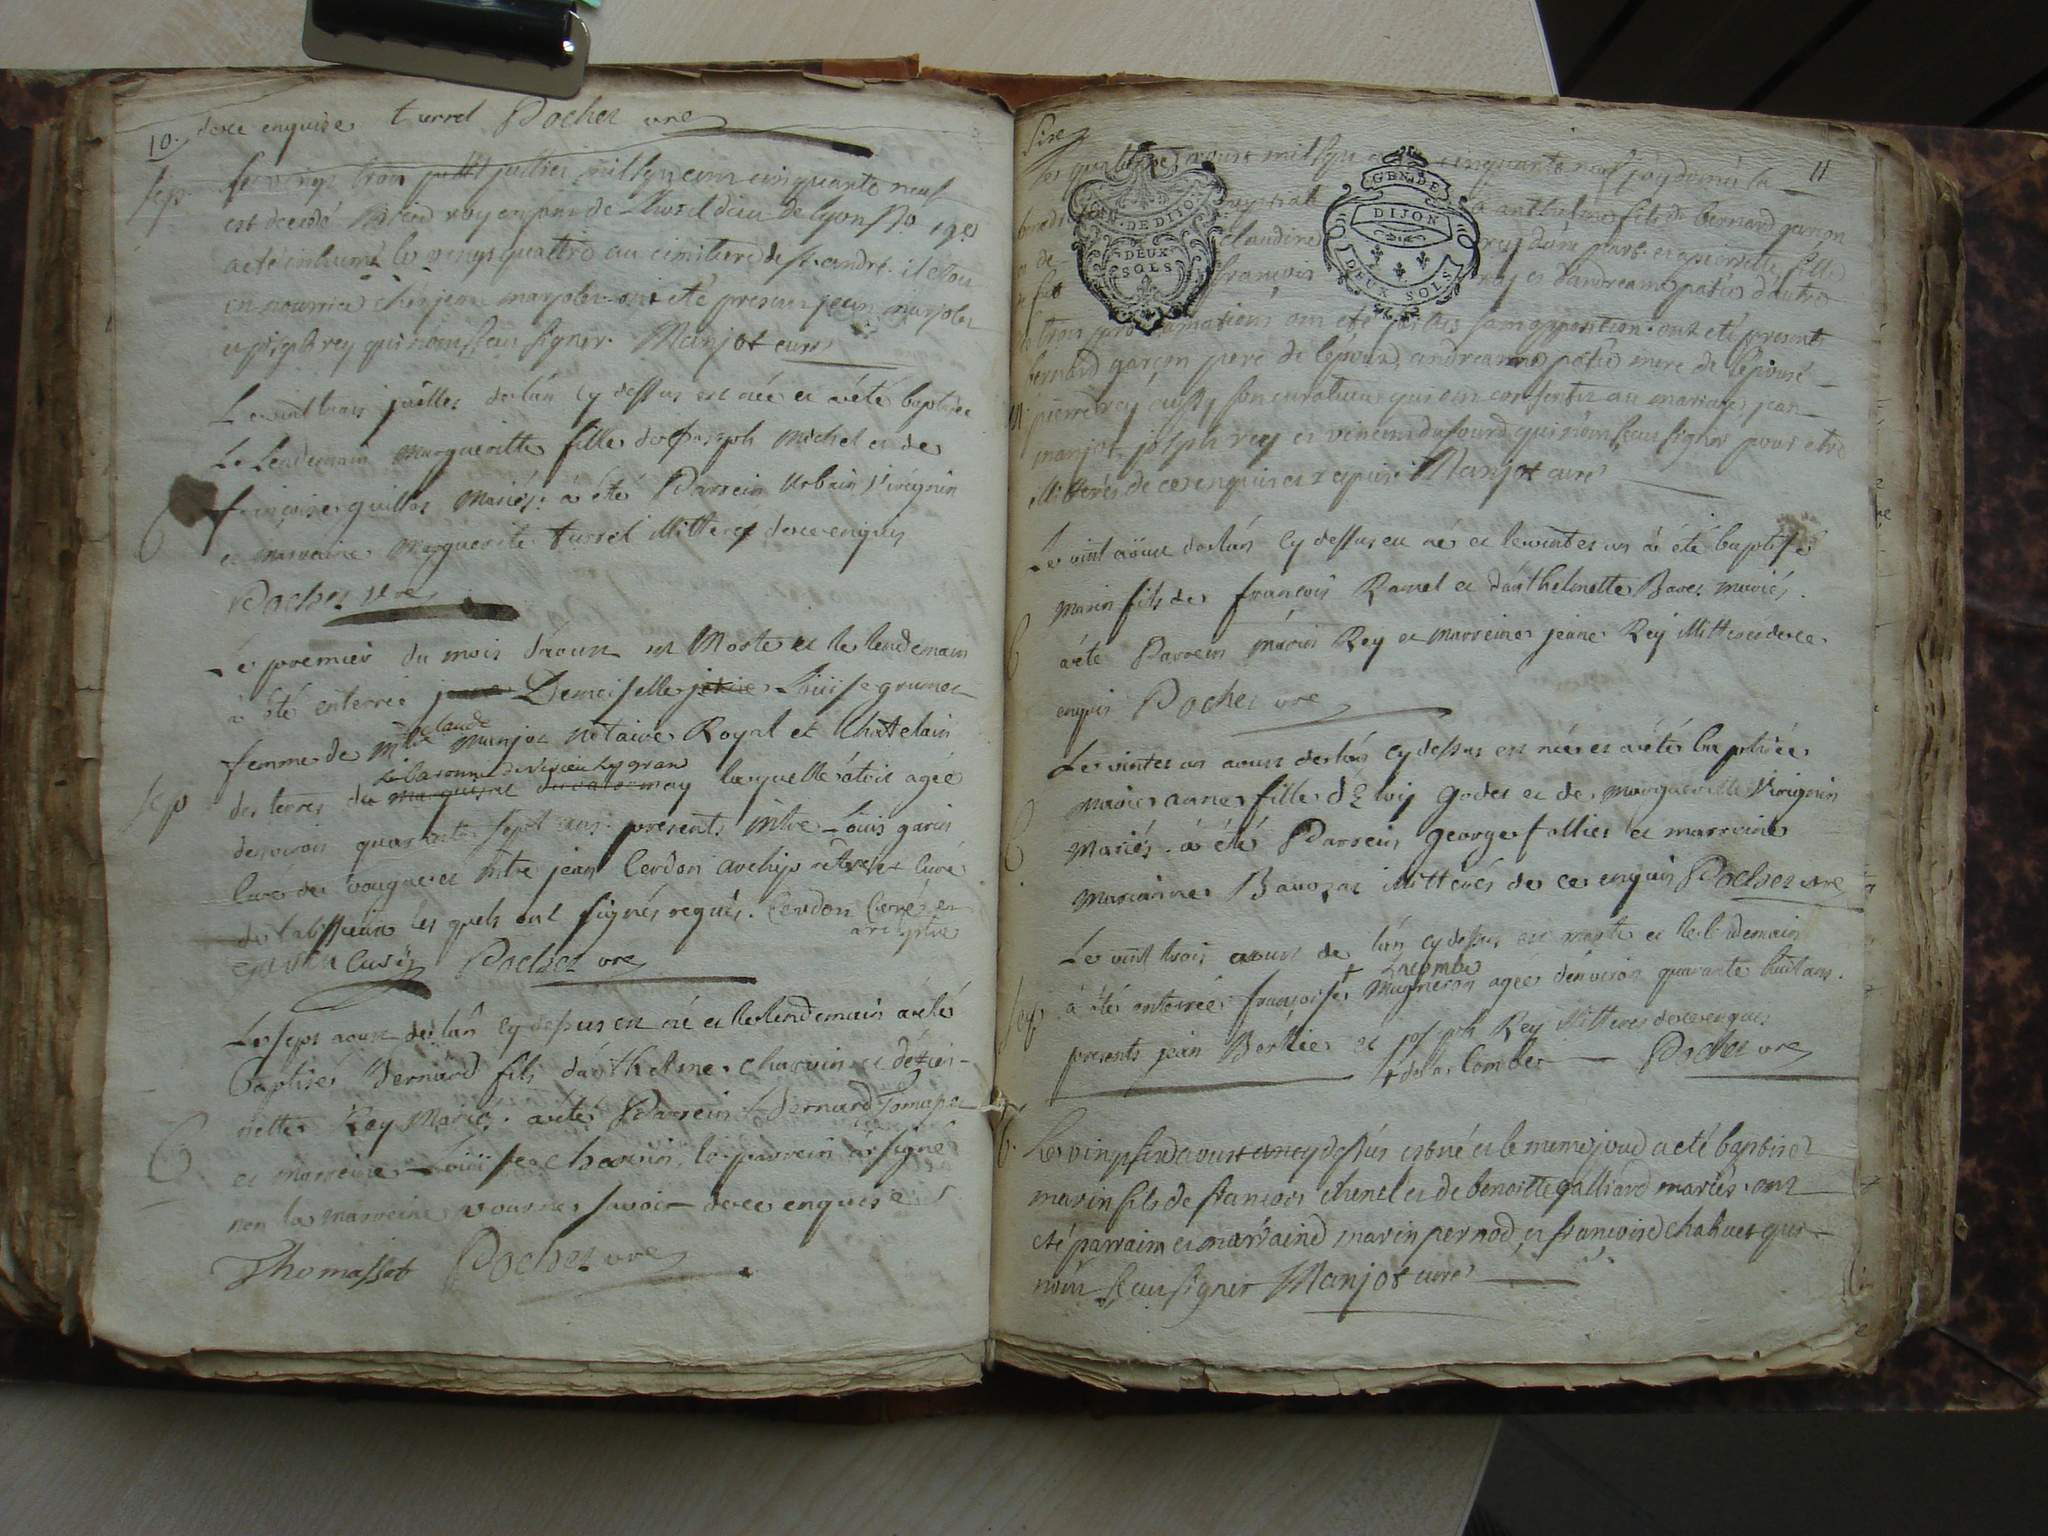 10. de ce enquise turrel Pochet vre
sep.
Le vingt trois juillet mil sept cent cinquante neuf
est decedé rey enfant de l'hotel dieu de lyon no
a été inhumé le vingt quatre au cimitiere de st andré. il étoit
en nourrice chez jean marjolet ont été presens jean marjolet
et joseph rey qui n'ont sceu signer. Manjot curé
Le vint trois juillet de l'an cy dessus est née et a été baptisée
Le Lendemain marguerite fille de joseph michel et de
françoise guillot mariés. a été Parrein Urbain virignin
et marraine marguerite turrel illitterés de ce enquis
Pochet vre
Le premier du mois d'aoust est Morte et le lendemain
à été enterrée Demoiselle Loüise grumet
femme de mtre claude manjot notaire Royal et Chatelain
des terres du
laquelle étoit agée
denviron quarante sept ans. presents mtre Loüis garin
curé de vougne et mtre jean Cerdon archiprêtre et curé
de les quels ont signés requis. Cerdon Curé et
archiptre
curé Pochet vre
sep
Le sept aoust de l'an cy dessus est né et le lendemain a été
Baptisé Bernard fils d'anthelme charvin et d'étien-
nette Rey Mariés. a été Parrein Bernard Tomasset
et marreine Loüise charvin, le parrein a signé
non la marreine pour ne savoir de ce enquise
Thomasset Pochet vre
11
Le quatorze aoust mil sept cinquante neuf j'ay donné la
anthelme fils de bernard garçon
et de claudine rey d'une part. et a pierrette fille
françois rey et d'andreanne d'autre
trois proclamations ont été faites sans opposition. ont été presents
bernard garçon pere de l'époux, andreanne mere de l'épouse
pierre rey aussy son curateur qui ont consentis au mariage, jean
manjot, joseph rey et vincent dufour qui n'ont sceu signer pour etre
illitterés de ce enquis et requis. Manjot curé
Le vint aoust de l'an cy dessus est né et le vint et un a été baptisé
Marin fils de françois Ramel et d'anthelmette Bavet mariés.
a été Parrein marin Rey et marreine jeane Rey illitterés de ce
enquis Pochet vre
Le vint et un aoust de l'an cy dessus est née et a été baptisée
marie anne fille d'Eloy godet et de marguerite Virignin
Mariés. a été Parrein george follier et marreine
marianne illitterés de ce enquis Pochet vre
Le vint trois aoust de l'an cy dessus est morte et le lendemain
à été enterrée françoise Lacombe mugneron agée denviron quarante huit ans.
presents jean Berllie et joseph Rey illitterés de ce enquis
Pochet vre
sep
Le vingt aoust an cy dessus est né et le meme jour a eté baptisé
marin fils de françois chenel et de benoitte galliard mariés. ont
eté parrain et marraine marin pernod et françoise chahuet qui
n'ont sceu signer Manjot curé
GEN. DE
DIJON
DEUX SOLS
DE DIJO
DEUX
SOLS